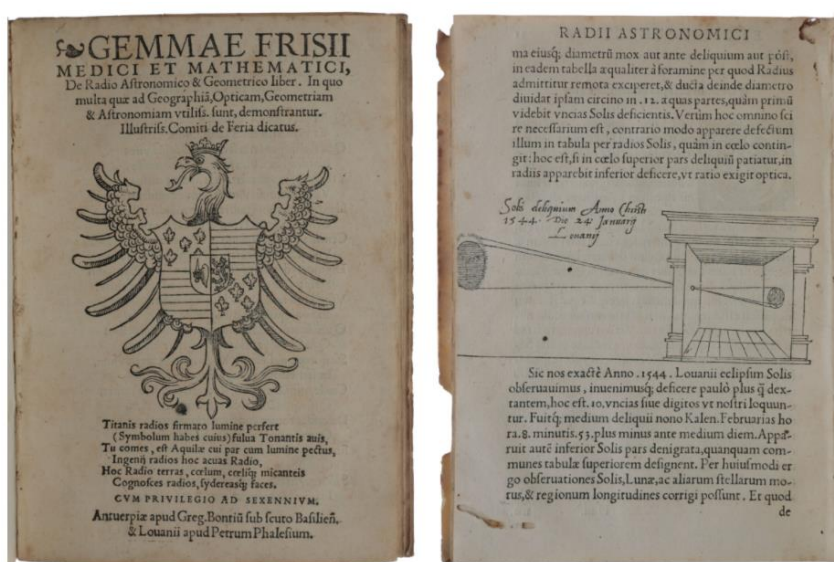 GEMMAE FRISII
MEDICI ET MATHEMATICI,
De Radio Astronomico & Geometrico liber. In quo
multa quæ ad Geographiã, Opticam, Geometriam
& Astronomiam vtiliſs. ſunt, demonſtrantur.
Illuſtriſs. Comiti de Feria dicatus.
Titanis radios firmato lumine perfert
(Symbolum habes cuius) fulua Tonantis auis,
Tu comes, eſt Aquilæ cui par cum lumine pectus,
Ingenij radios hoc acuas Radio,
Hoc Radio terras, cœlum, cœliq́; micanteis
Cognoſces radios, ſydereasq́; faces.
CVM PRIVILEGIO AD SEXENNIVM.
Antuerpiæ apud Greg. Bontiũ ſub ſcuto Baſilieñ.
& Louanii apud Petrum Phaleſium.
RADII ASTRONOMICI
ma eiusq́; diametrũ mox aut ante deliquium aut póſt,
in eadem tabella æqualiter à foramine per quod Radius
admittitur remota exciperet, & ducta deinde diametro
diuidat ipſam circino in .12. æquas partes, quàm primũ
videbit vncias Solis deficientis. Verùm hoc omnino ſci
re neceſſarium eſt, contrario modo apparere defectum
illum in tabula per radios Solis, quàm in cœlo contin-
git: hoc eſt, ſi in cœlo ſuperior pars deliquiũ patiatur, in
radiis apparebit inferior deficere, vt ratio exigit optica.
Solis deliquium Anno Christi
1544. Die 24 Januarij
Louanij
Sic nos exactè Anno .1544. Louanii eclipſim Solis
obſeruauimus, inuenimusq́; deficere paulò plus q̃ dex-
tantem, hoc eſt. 10. vncias ſiue digitos vt noſtri loquun-
tur. Fuitq́; medium deliquii nono Kalen. Februarias ho
ra. 8. minutis. 53. plus minus ante medium diem. Appa-
ruit autẽ inferior Solis pars denigrata, quanquam com-
munes tabulæ ſuperiorem deſignent. Per huiuſmodi er
go obſeruationes Solis, Lunæ, ac aliarum ſtellarum mo-
tus, & regionum longitudines corrigi poſſunt. Et quod
de